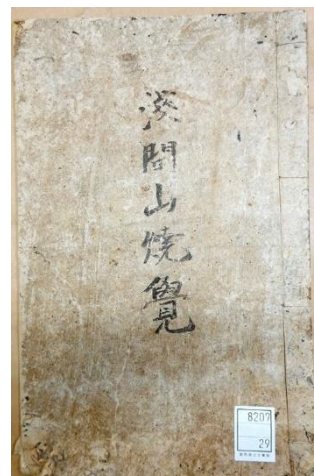 淺間山燒覺
8207
29